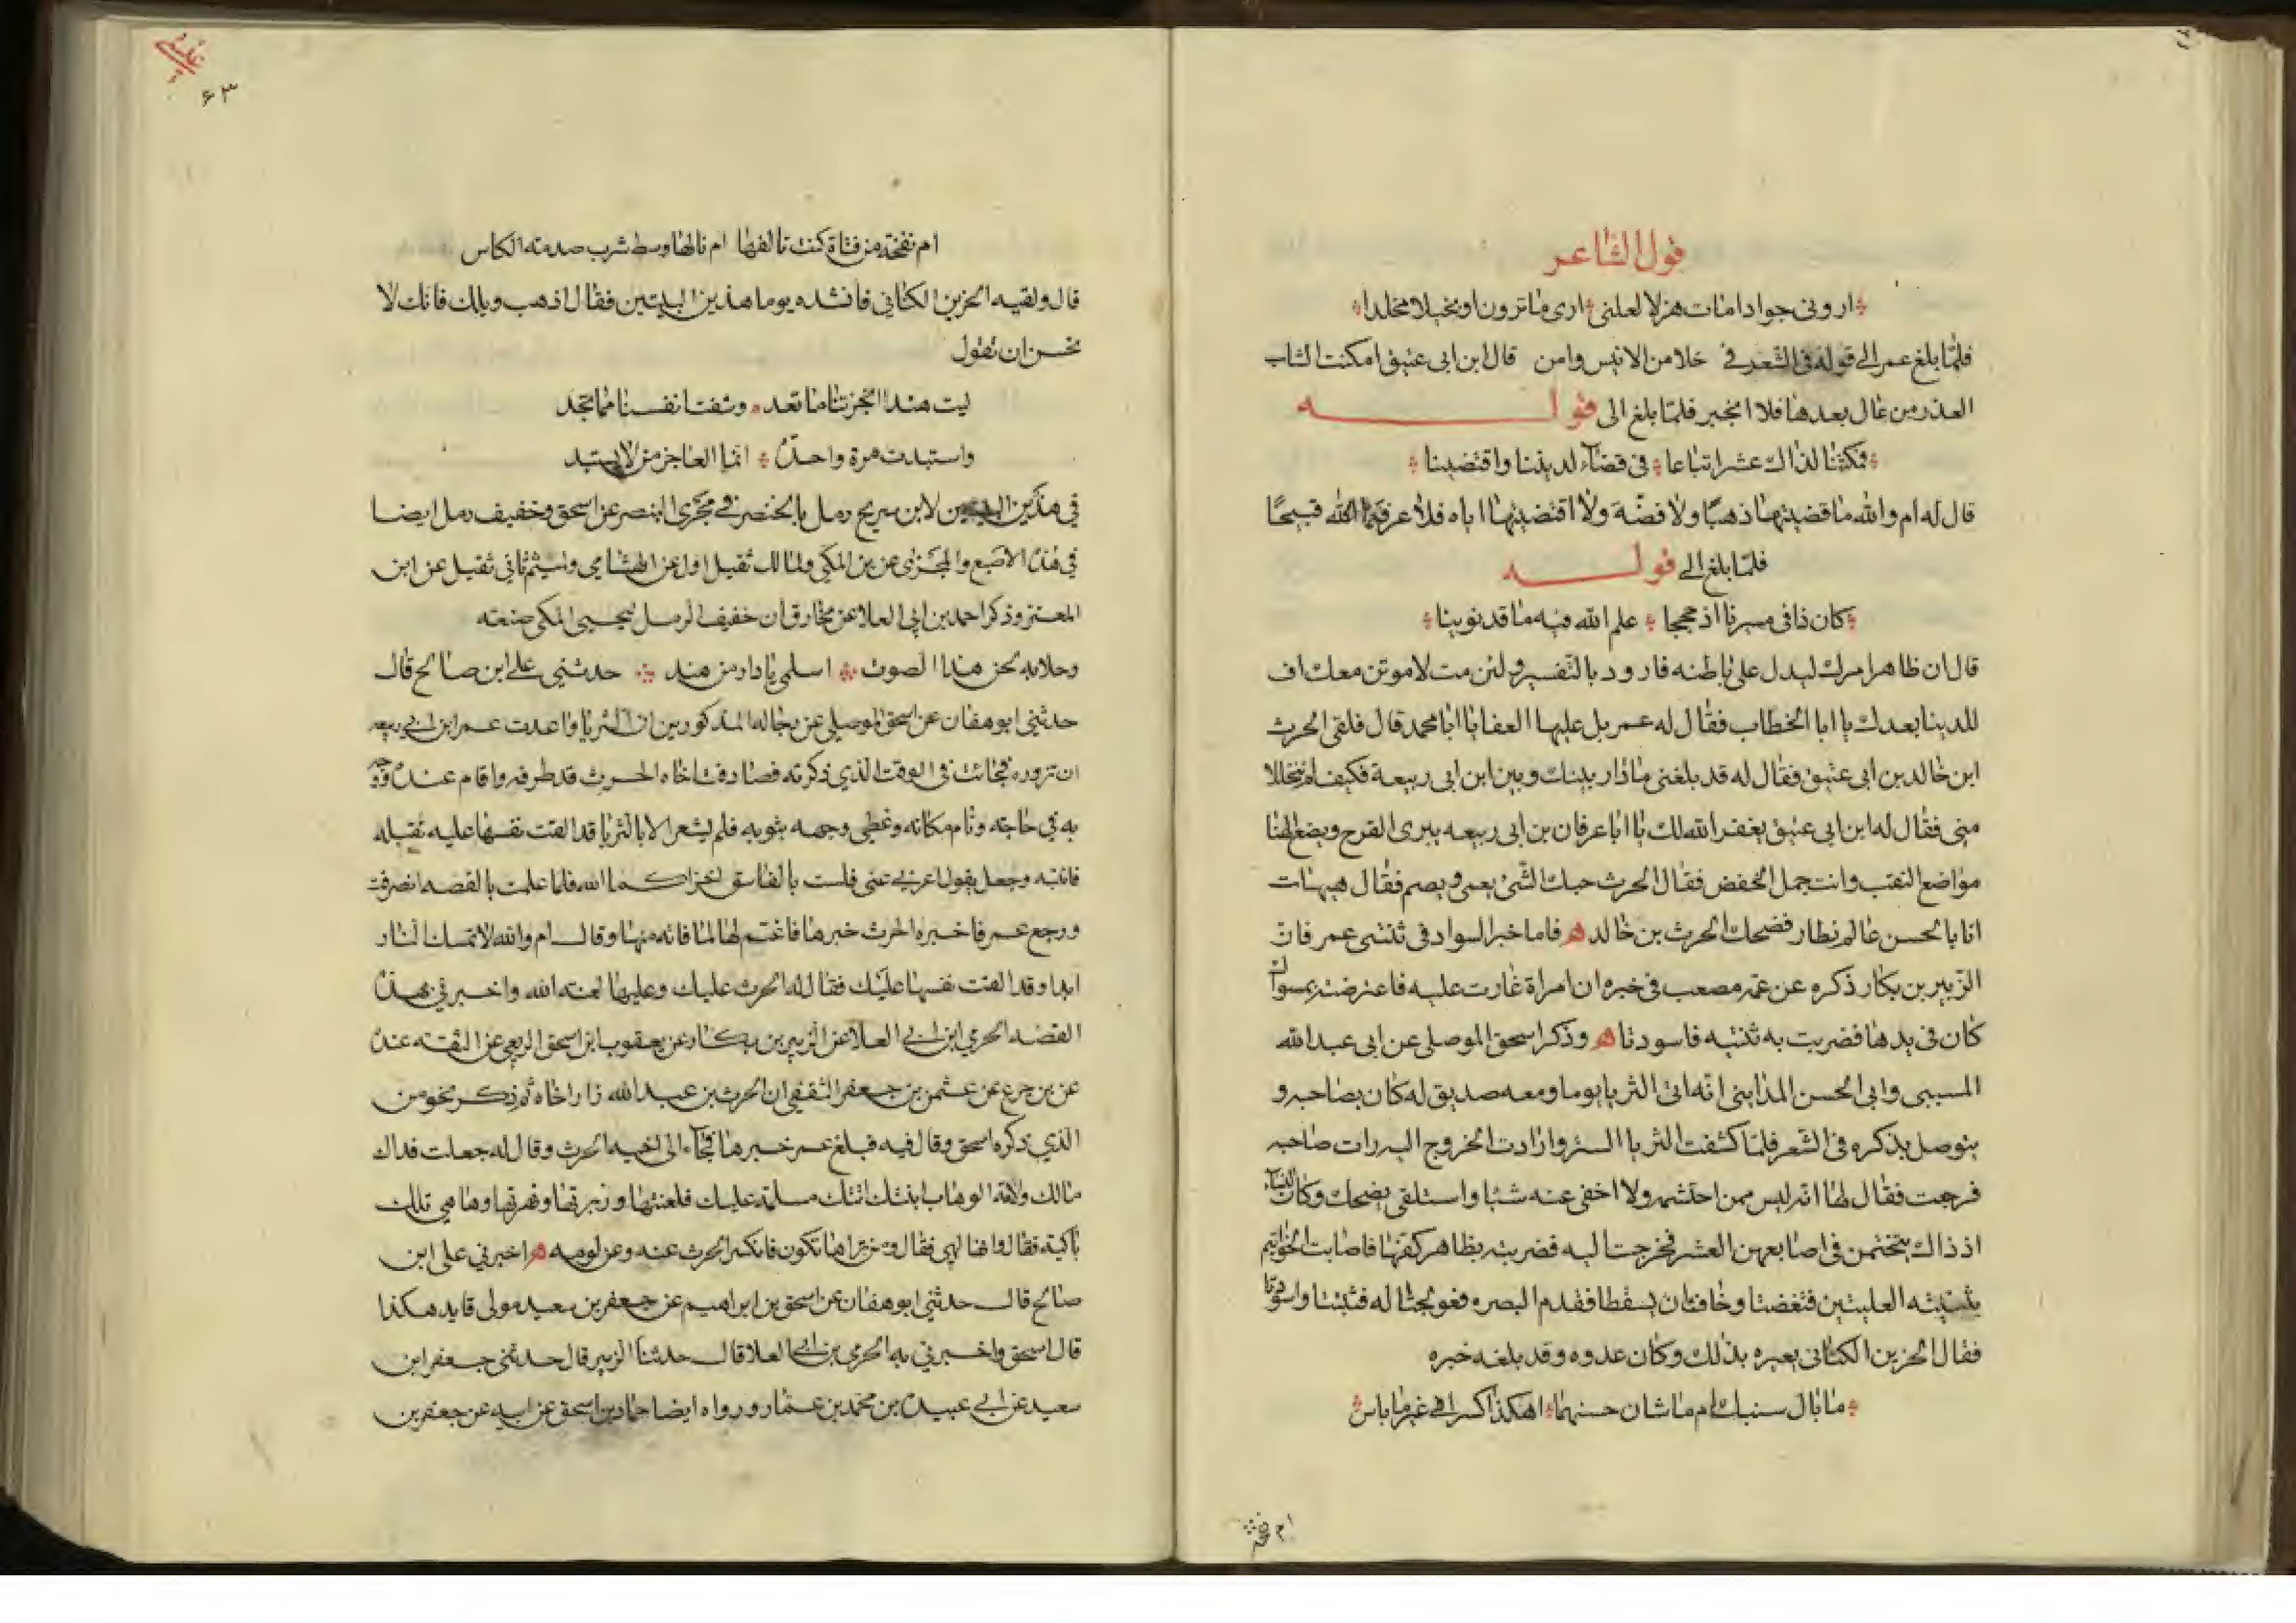 قول الشاعر
اروني جوادا مات هزلا لعلني ارى ما ترون او بخيلا مخلدا
فلما بلغ عمر الى قوله في الشعر في خلا من الانيس وامن قال ابن ابي عتيق امكنت الشاب
العذر من عال بعدها فلا انجبر فلما بلغ الى قوله
فمكثنا لذاك عشرا تباعا في قضاء لديننا واقتضينا
قال له ام والله ما قضيتها ذهبا ولا فضة ولا اقتضيتها اياه فلا عرفكما الله قبيحا
فلما بلغ الى قوله
كان ذا في مسيرنا اذ حججا علم الله فيه ما قد نوينا
قال ان ظاهر امرك ليدل على باطنه فارود بالتفسير ولئن مت لاموتن معك اف
للدينا بعدك يا ابا الخطاب فقال له عمر بل عليها العفا يا ابا محمد قال فلقى الحرث
ابن خالد بن ابي عتيق فقال له قد بلغني ما دار بينك وبين ابن ابي ربيعة فكيف لم تتحللا
مني فقال له ابن ابي عتيق يغفر الله لك يا ابا عرفان بن ابي ربيعه يبرى القرح ويضع الهنا
مواضع النقب وانت جمل الخفض فقال الحرث حبك الشئ يعمى ويصم فقال هيهات
انا بالحسن عالم نطار فضحك الحرث بن خالد ه فاما خبر السواد في ثنتى عمر فان
الزبير بن بكار ذكره عن عمه مصعب في خبره ان امراة غارت عليه فاعترضته بمسواك
كان في يدها فضربت به ثنتيه فاسودتا ه وذكر اسحق الموصلي عن ابي عبد الله
المسيبى وابي الحسن المدايني انه اتى الثريا يوما ومعه صديق له كان يصاحبه و
يتوصل بذكره في الشعر فلما كشفت الثريا الستر وارادت الخروج اليه رات صاحبه
فرجعت فقال لها انه ليس ممن احتشمه ولا اخفى عنه شيا واستلقى يضحك وكان النساء
اذ ذاك يتختمن في اصابعهن العشر فخرجت اليه فضربته بظاهر كفها فاصابت الخواتيم
بثنيتيه العليتين فتغضتا وخافتا ان يسقطا فقدم البصره فعولجتا له فثبتتا واسودتا
فقال الحزين الكناني يعيره بذلك وكان عدوه وقد بلغه خبره
ما بال سنيك ام ما شان حسنهما اهكذا كسرا في غير ما باس
ام نفخة
غلبي
۶۳
ام نفخة من فتاة كنت تالفها ام نالها وسط شرب صدمة الكاس
قال ولقيه الحزين الكناني فانشده يوما هذين البيتين فقال اذهب ويلك فانك لا
تحسن ان تقول
ليت هندا انجزتنا ما تعد وشفت انفسنا مما تجد
واستبدت مرة واحدة انما العاجز من لا يستبد
في هذين البيتين لابن سريج رمل بالخنصر في مجرى البنصر عن اسحق وخفيف رمل ايضا
في هذه الاصبع والمجرى عن بن المكي ولمالك ثقيل اول عن الهشامي ولميثم ثاني ثقيل عن ابن
المعتز وذكر احمد بن ابي العلا عن مخارق ان خفيف الرمل ليحيى المكي صنعته
وحلابه لحن هذا الصوت اسلمي يا دار من هند حدثني علي ابن صالح قال
حدثني ابو هفان عن اسحق الموصلي عن رجاله المذكورين ان الثريا واعدت عمر ابن ابي ربيعه
ان تزوره فجائت في الوقت الذي ذكرته فصادفت اخاه الحرث قد طرفه واقام عنده ووجه
به في حاجته ونام مكانه وغطى وجهه بثوبه فلم يشعر الا بالثريا قد القت نفسها عليه تقبله
فانتبه وجعل يقول اعزبي عني فلست بالفاسق اخزاكما الله فلما علمت بالقصه انصرفت
ورجع عمر فاخبره الحرث خبرها فاغتم لها لما فاته منها وقال ام والله لا تمسك النار
ابدا وقد القت نفسها عليك فقال له الحرث عليك وعليها لعنة الله واخبرني بهذه
القصه الحرمي ابن ابي العلا عن الزبير بن بكار عن يعقوب ابن اسحق الربعي عن الثقه عنده
عن بن جرع عن عثمن بن جعفر الثقفي ان الحرث بن عبد الله زار اخاه ثم ذكر نحو من
الذي ذكره اسحق وقال فيه فبلغ عمر خبرها فجاء الى اخيه الحرث وقال له جعلت فداك
مالك ولامة الوهاب ابنتك اتتك مسلمة عليك فلعنتها وزبرتها ونهرتها وها هي تلك
باكية فقال وانها لهي فقال ومن تراها تكون فانكسر الحرث عنه وعن لومه ه اخبرني علي ابن
صالح قال حدثني ابو هفان عن اسحق بن ابراهيم عن جعفر بن سعيد مولى قايد هكذا
قال اسحق واخبرني به الحرمي بن ابي العلا قال حدثنا الزبير قال حدثني جعفر ابن
سعيد عن ابي عبيدة بن محمد بن عمار ورواه ايضا حماد بن اسحق عن ابيه عن جعفر بن